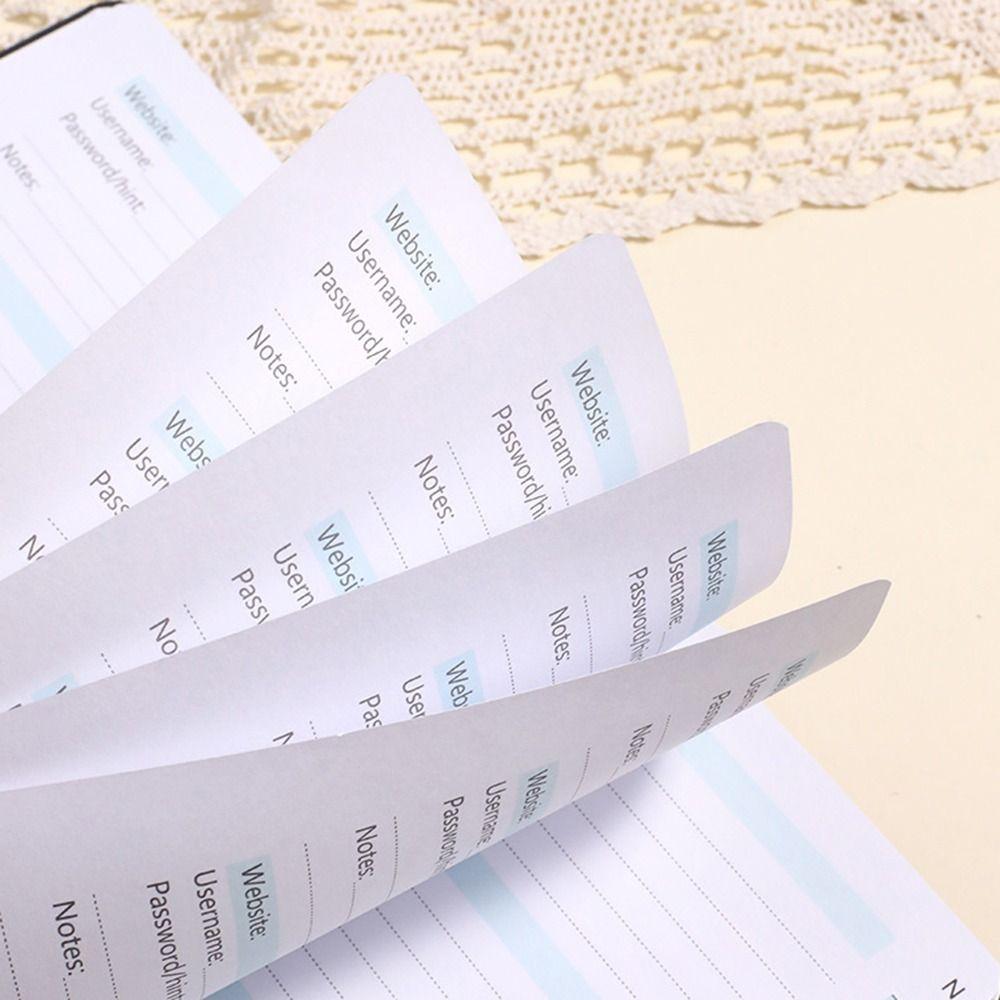 Website:
Username:
Password/hint:
Notes:
Website:
Username:
Password/h
Notes:
Webs
User
Pass
No
Website:
Username:
Password/hi
Notes:
Websi
Usern
Pass
No
Website:
Username:
Password/hin
Notes:
Web
User
Pas
N
We
User
Passw
Notes:
Website
Username
Password/h
Notes:
Website:
Username:
Password/hint
Notes:
N